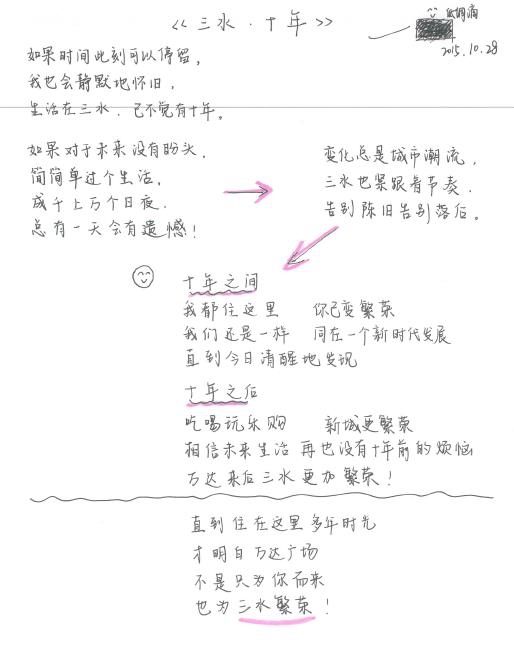 <<三水·十年>>
2015.10.28
如果时间此刻可以停留，
我也会静默地怀旧，
生活在三水，已不觉有十年。
如果对于未来没有盼头，
简简单过个生活，
成千上万个日夜，
总有一天会有遗憾！
变化总是城市潮流，
三水也紧跟着节奏，
告别陈旧告别落后。
十年之间
我都住这里 你已变繁荣
我们还是一样 同在一个新时代发展
直到今日清醒地发现
十年之后
吃喝玩乐购 新城更繁荣
相信未来生活 再也没有十年前的烦恼
万达来后三水更加繁荣！
直到住在这里多年时光
才明白万达广场
不是只为你而来
也为三水繁荣！